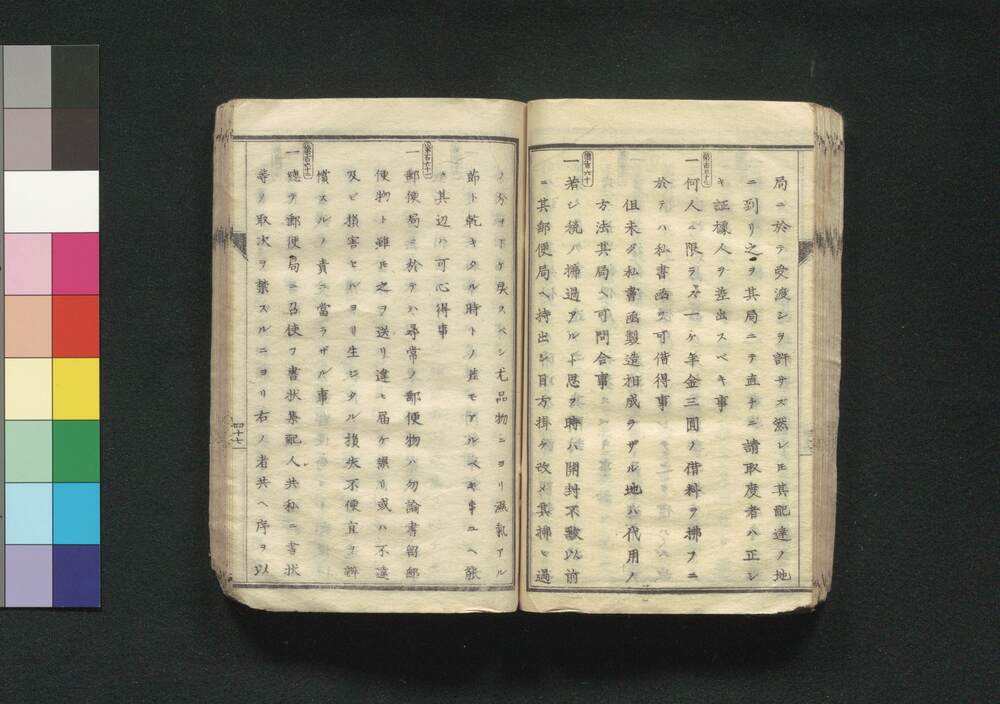 局ニ於テ受渡シヲ許サズ然レ𪜈其配達ノ地
ニ到リ之ヲ其局ニテ直ナニ請取度者ハ正シ
キ証據人ヲ差出スベキ事
第百五十九
一何人ニ限ラズ一ケ年金三圓ノ借料ヲ拂フニ
於テハ私書函ヲ可借得事
但未ダ私書函製造相成ラザル地ハ代用ノ
方法其局ヘ可問合事
第百六十
一若シ税ハ擲過アルト思フ時ハ開封不致以前
ニ其郵便局ヘ持出シ目方掛ケ改メ其拂ヒ過
ノ分ヲ下ケ戻スベシ尤品物ニヨリ濕氣アル
節ト乾キタル時トノ差モアルベキ事ユヘ能
ク其辺ハ可心得事
第百六十一
一郵便局ニ於テハ尋常ノ郵便物ハ勿論書留郵
便物ト雖𪜈之ヲ送リ違ヒ届ケ誤リ或ハ不達
及ビ損害セルヨリ生ジタル損失不便宜ヲ辨
償スルノ責ニ當ラザル事
第百六十二
一總テ郵便局ニ召使フ書状集配人共私ニ書状
等ノ取次ヲ禁ズルニヨリ右ノ者共ヘ序ヲ以
四十七